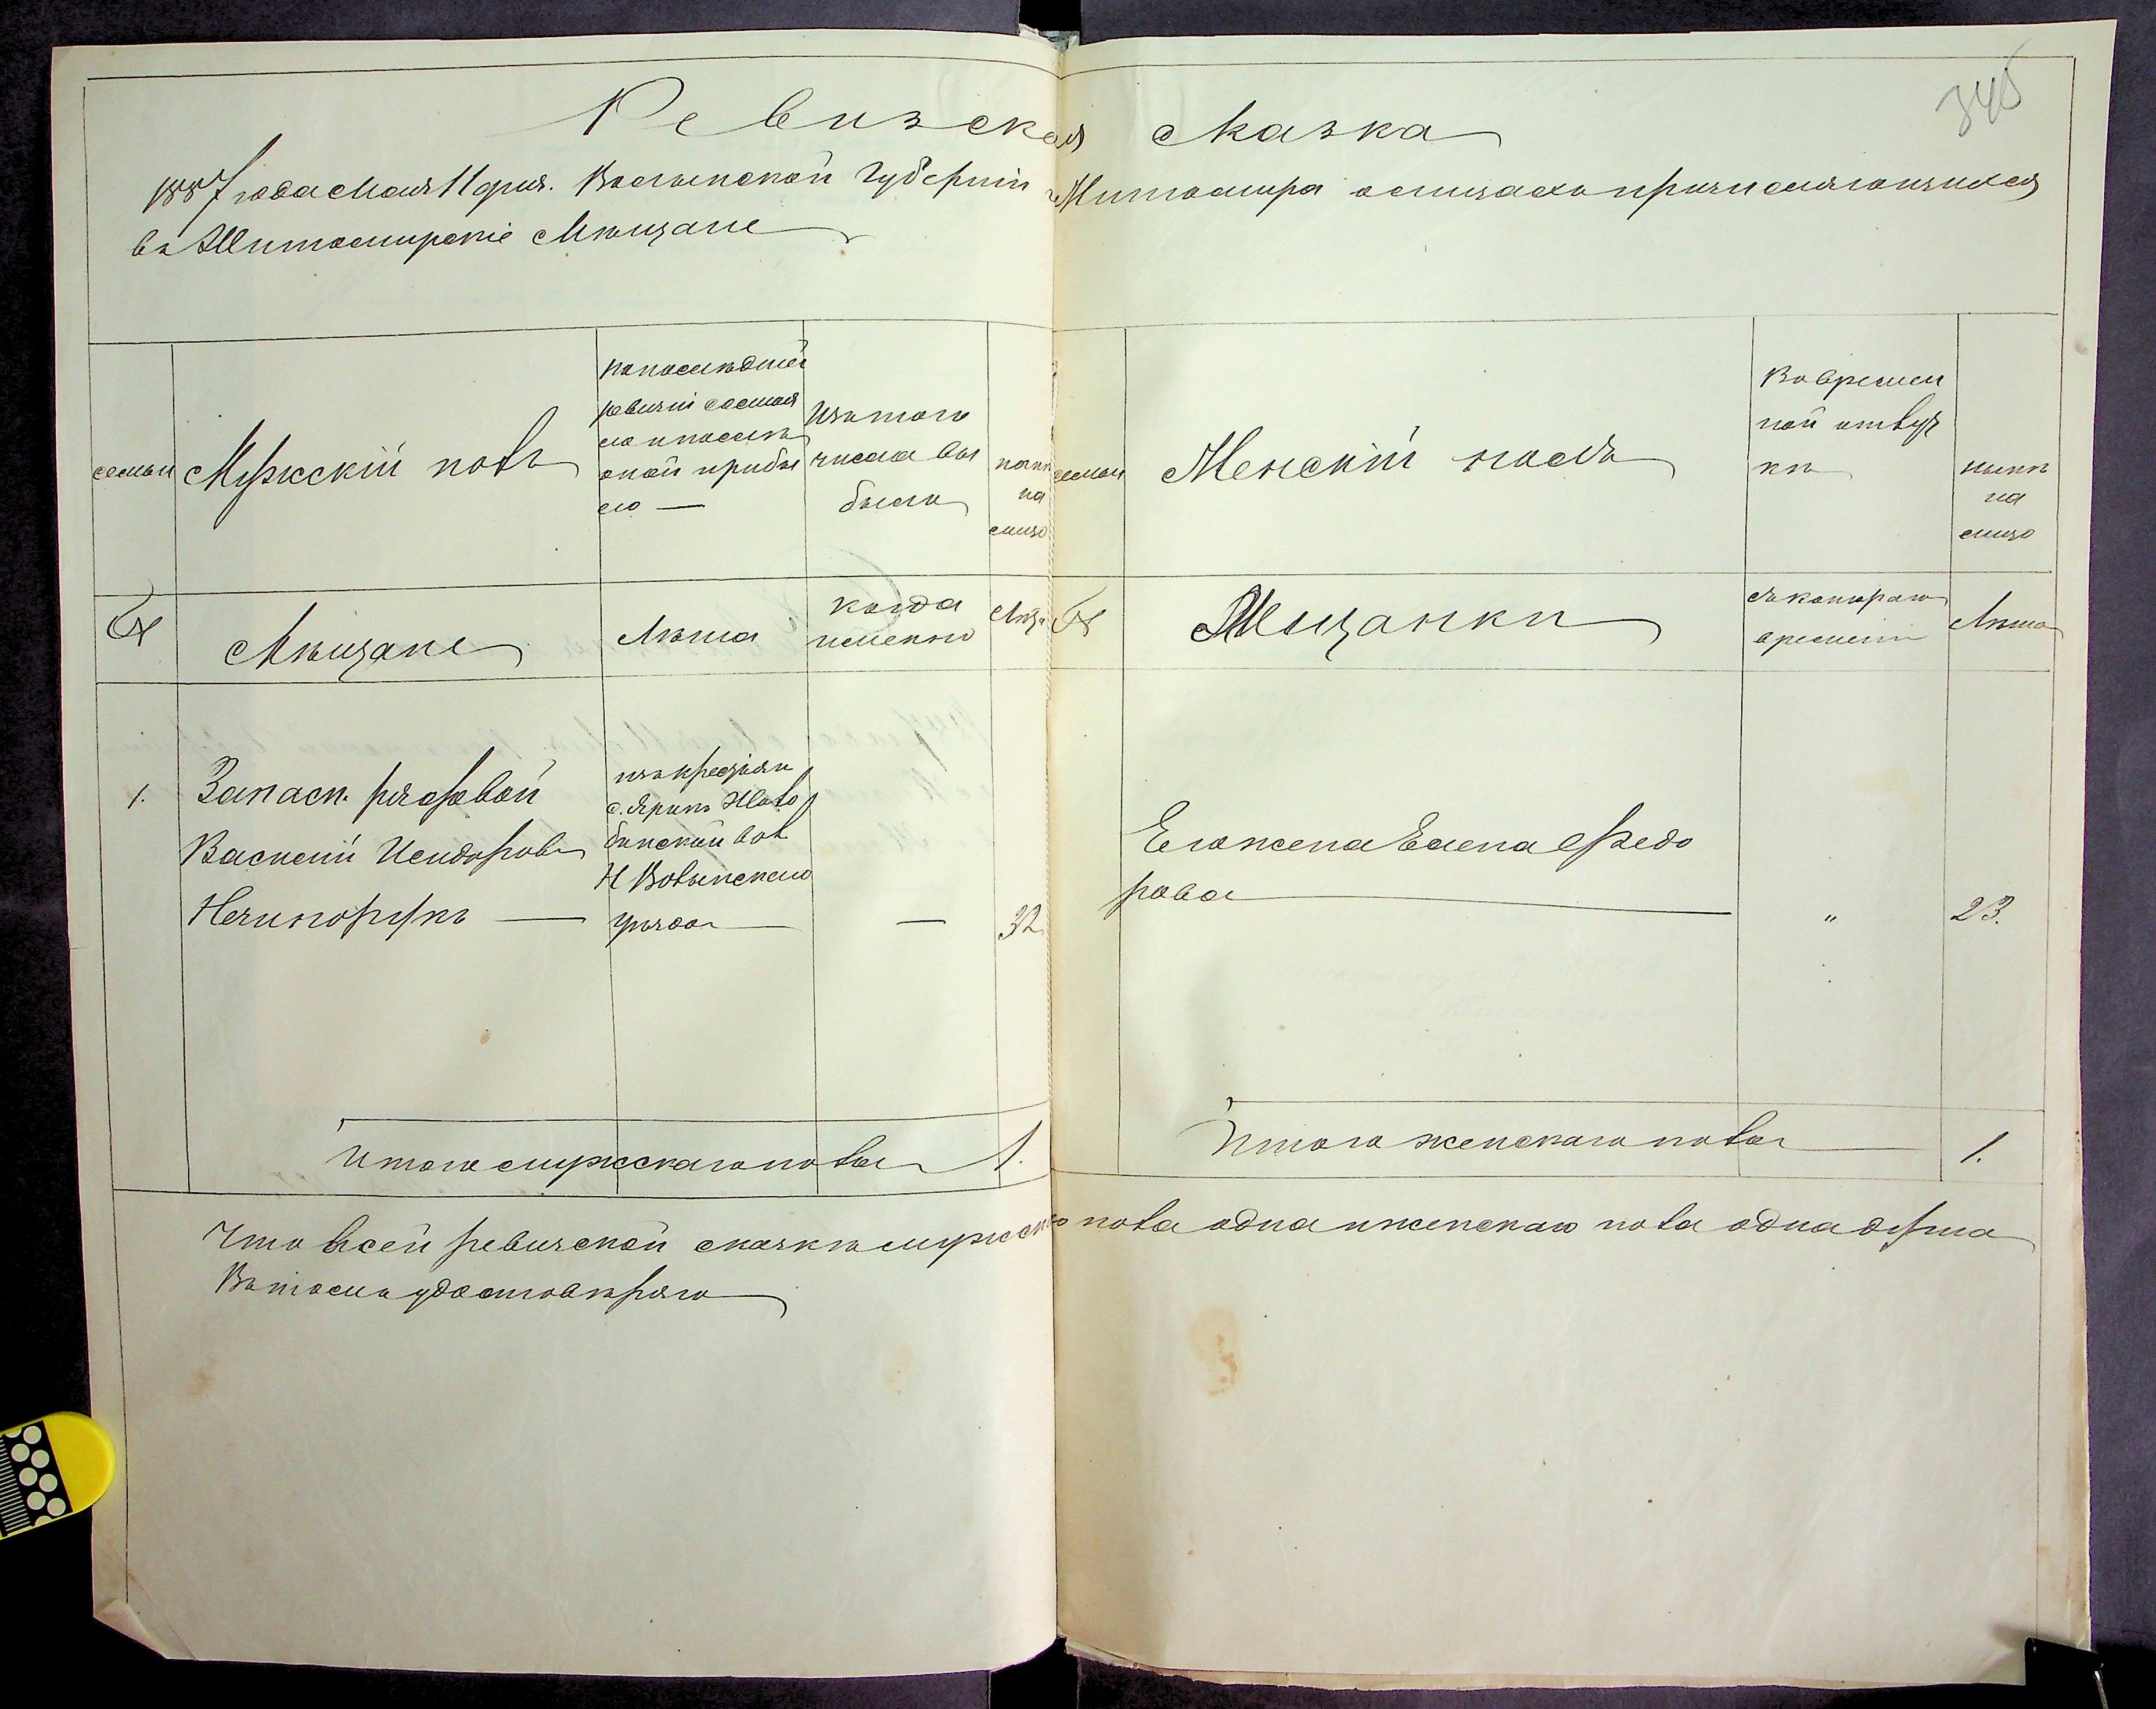 345
Ревизская сказка
1887 года Мая 11 дня. Волынской Губерніи г. Житомира о лицахъ причисляющихся
въ Житомирскіе Мѣщане
семьи
Мужскій полъ
по последней
ревизіи состоя
ло и после
оной прибы
ло —
Изъ того
числа вы
было
ныне
на
лицо
семьи
Женскій полъ
Во времен
ной отлуч
кѣ
нынѣ
на
лицо
№
Мѣщане
Лѣта
когда
именно
Лѣта
№
Мещанки
Съ котораго
времени
Лѣта
1.
Запасн. рядовой
Василій Исидоровъ
Нечипорукъ —
изъ крестьян
с. Ярунь
вол
Н Волынскаго
уезда —
—
32
Его жена Елена Федо
рова
"
23.
Итого мужскаго пола 1.
Итого женскаго пола 1.
Что всей ревизской сказкѣ мужскаго пола одна и женскаго пола одна душа
Въ томъ удостоверяю